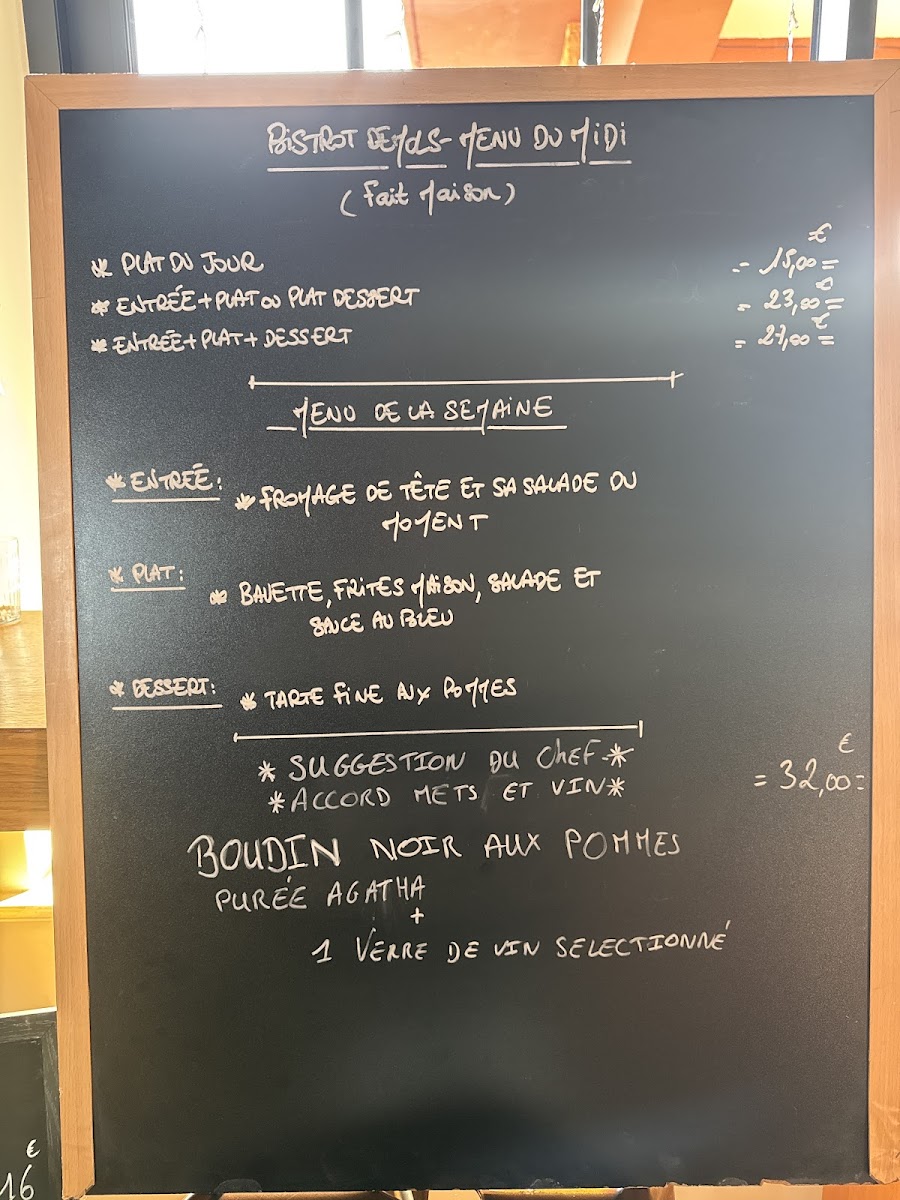 BISTROT DEMOLS - MENU DU MIDI
(fait Maison)
* PLAT DU JOUR = 15,00 € =
* ENTRÉE + PLAT OU PLAT DESSERT = 23,00 € =
* ENTRÉE + PLAT + DESSERT = 27,00 € =
MENU DE LA SEMAINE
* ENTRÉE: * FROMAGE DE TÊTE ET SA SALADE DU
MOMENT
* PLAT: * BAVETTE, FRITES MAISON, SALADE ET
SAUCE AU BLEU
* DESSERT: * TARTE FINE AUX POMMES
* SUGGESTION DU CHEF *
* ACCORD METS ET VIN * = 32,00 € =
BOUDIN NOIR AUX POMMES
PURÉE AGATHA
+
1 VERRE DE VIN SELECTIONNÉ
€
16